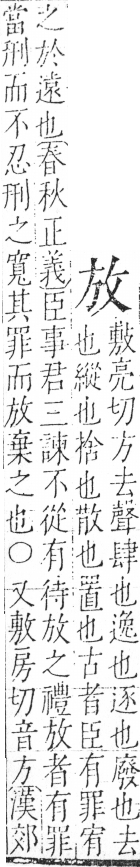 放
敷亮切方去聲肆也逸也逐也廢也去
也縱也捨也散也置也古者臣有罪宥
之於遠也春秋正義臣事君三諫不從有待放之禮放者有罪
當刑而不忍刑之寬其罪而放棄之也○又敷房切音方漢郊